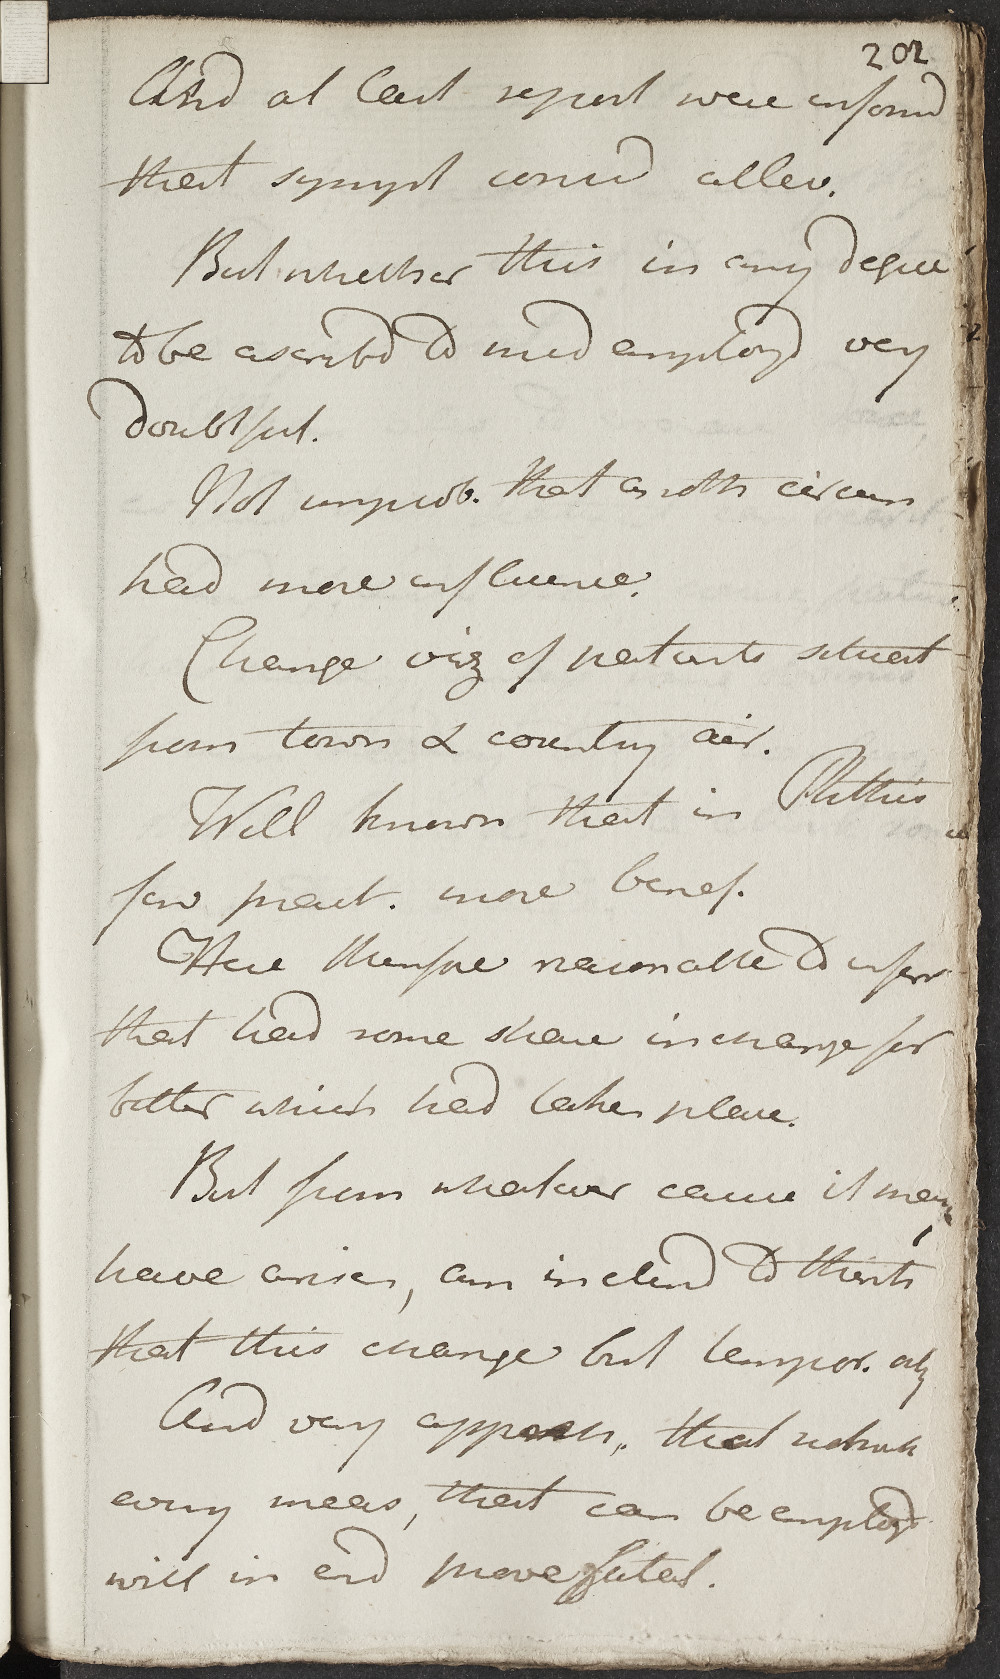 202
And at last report were informd
that sympt considd allev.
But whether this in any degree
to be ascribd to med employd very
doubtful.
Not improb. that anoth circum
had more influence.
Change viz of patients situat
from town to country air.
Well known that in Phthis
few pract. more benef.
Here therefore reasonable to infer
that had some share in change for
better which had taken place.
But from whatever cause it may
have arisen, am inclind to think
that this change but tempor. only
And very appreh., that notwith
every meas, that can be employd
will in end prove fatal.